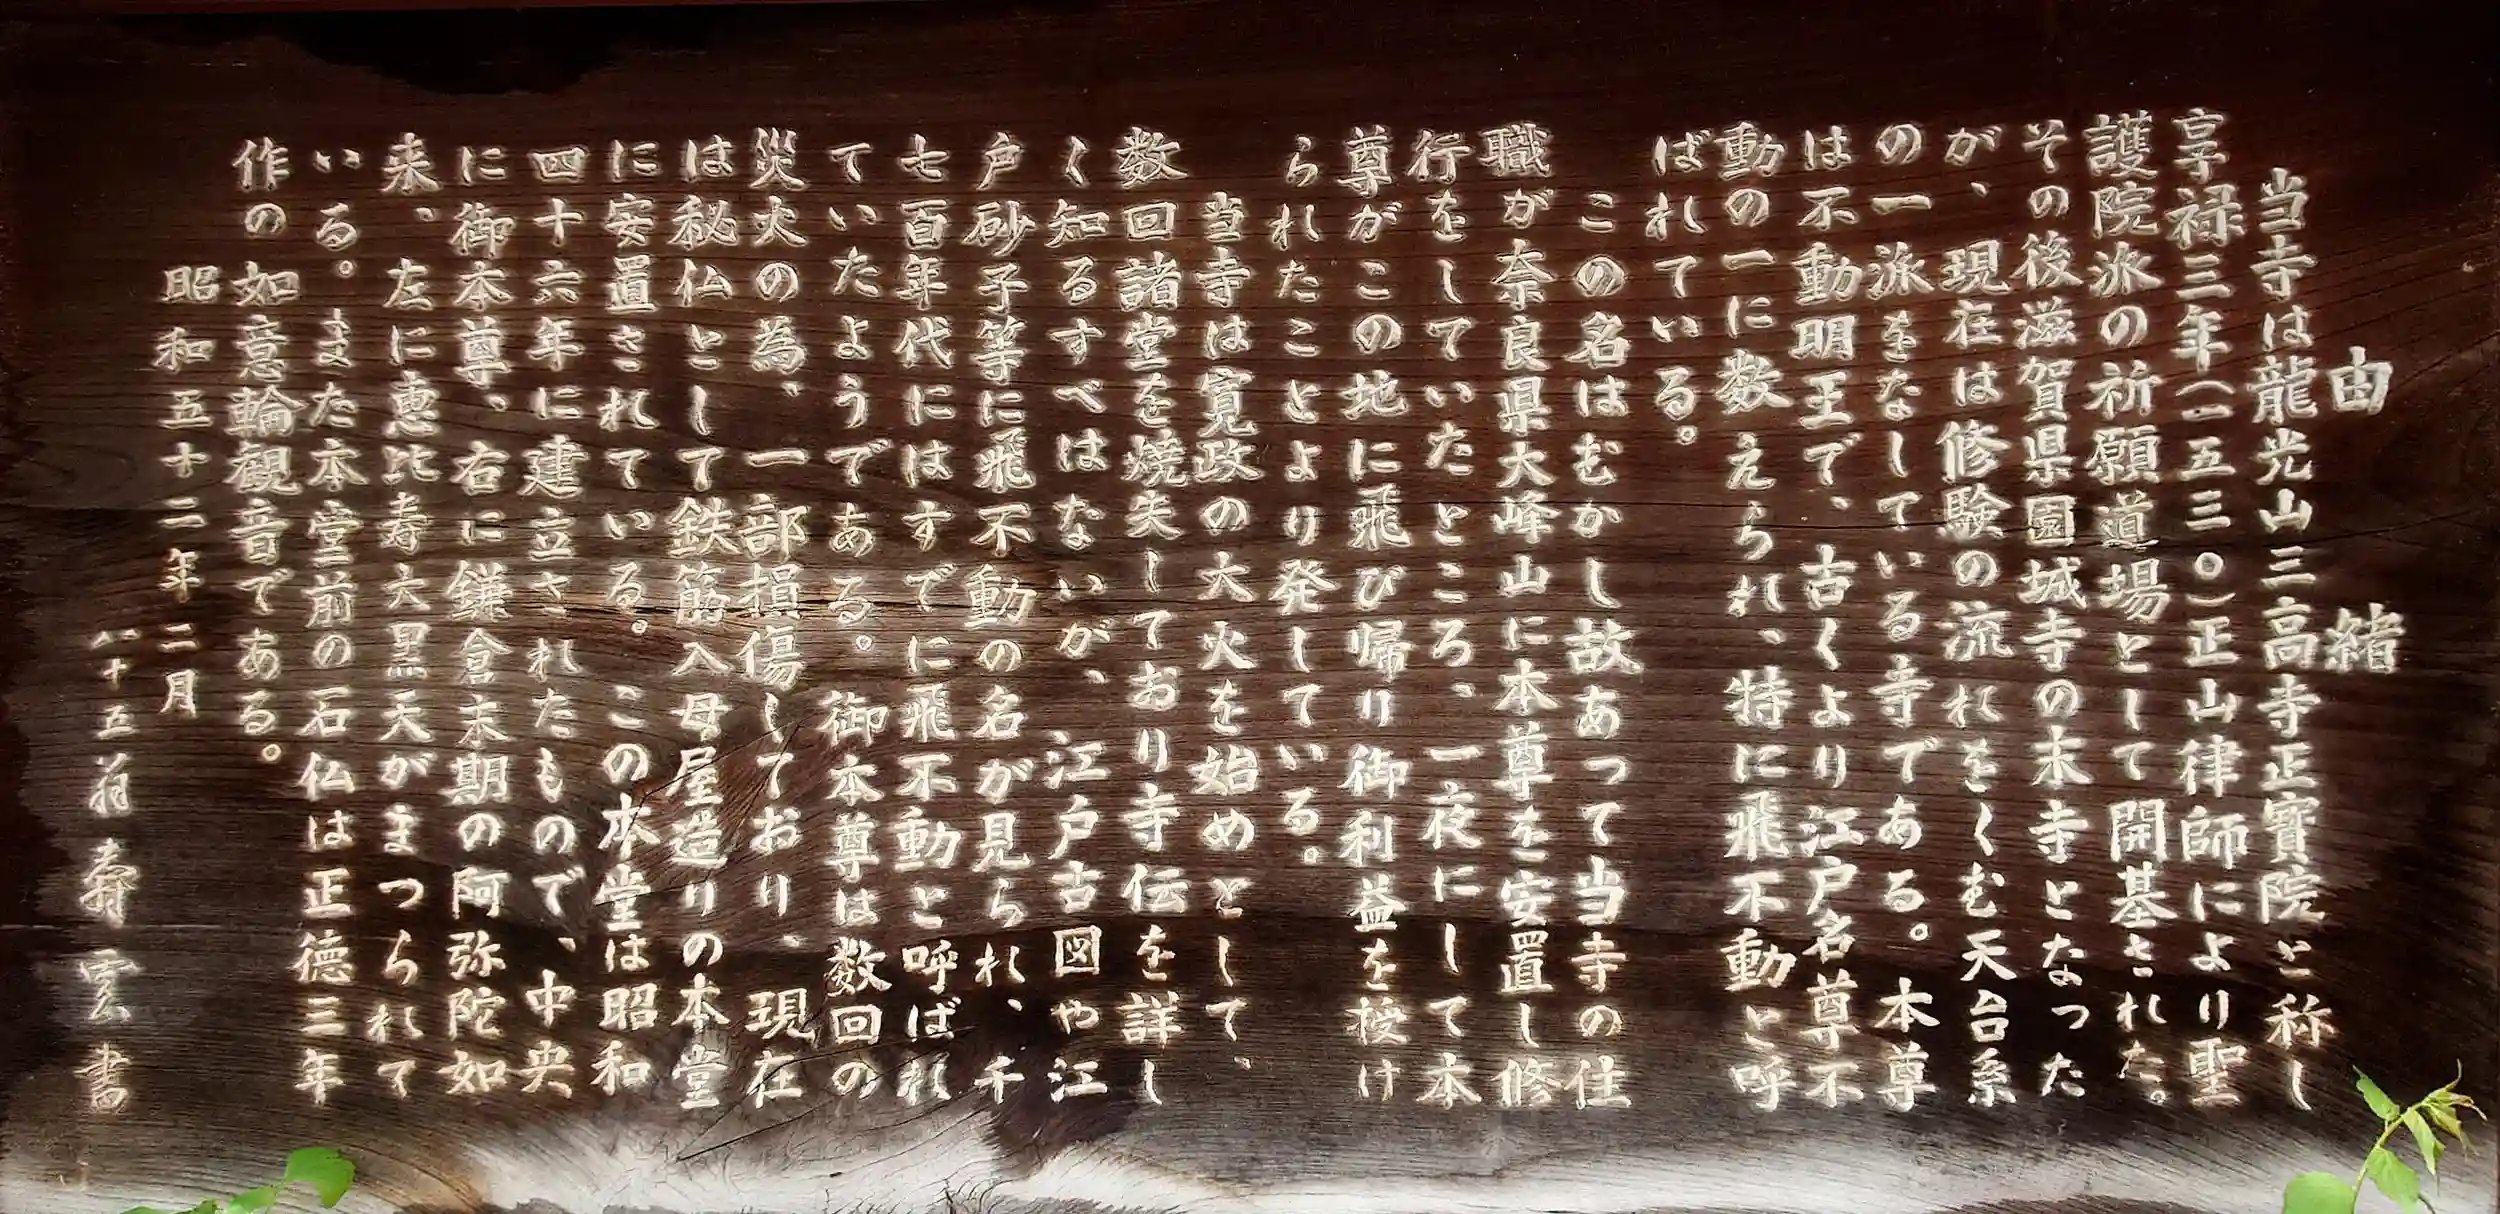 由緒
当寺は龍光山三高寺正寶院と称し
享禄三年(一五三〇)正山律師により聖
護院派の祈願道場として開基された。
その後滋賀県園城寺の末寺となった
が、現在は修験の流れをくむ天台系
の一派をなしている寺である。本尊
は不動明王で、古くより江戸名尊不
動の一に数えられ、特に飛不動と呼
ばれている。
この名はむかし故あって当寺の住
職が奈良県大峰山に本尊を安置し修
行をしていたところ、一夜にして本
尊がこの地に飛び帰り御利益を授け
られたことより発している。
当寺は寛政の大火を始めとして、
数回諸堂を焼失しており寺伝を詳し
く知るすべはないが、江戸古図や江
戸砂子等に飛不動の名が見られ、千
七百年代にはすでに飛不動と呼ばれ
ていたようである。御本尊は数回の
災火の為、一部損傷しており、現在
は秘仏として鉄筋入母屋造りの本堂
に安置されている。この本堂は昭和
四十六年に建立されたもので、中央
に御本尊、右に鎌倉末期の阿弥陀如
来、左に恵比寿大黒天がまつられて
いる。また本堂前の石仏は正徳三年
作の如意輪観音である。
昭和五十二年二月
八十五翁壽雲書